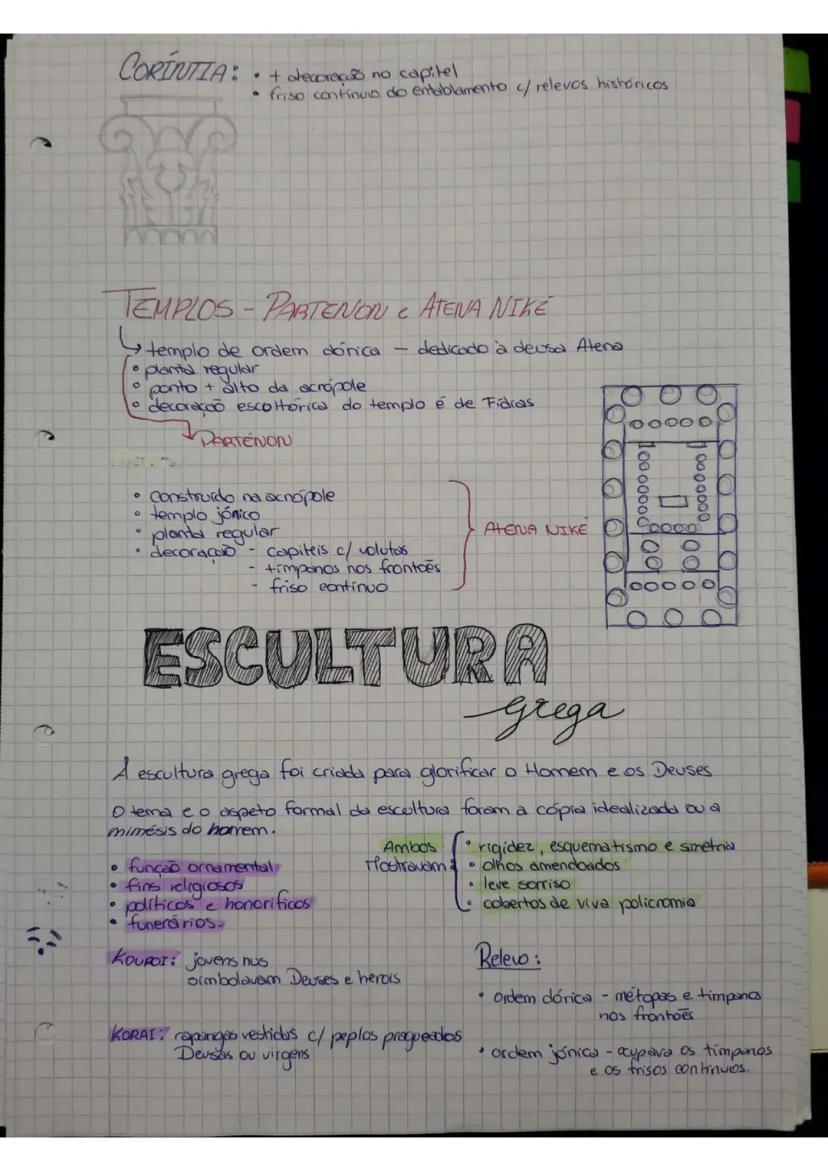 CORÍNTIA: • + decoração no capitel
• friso contínuo do entablamento c/ relevos históricos
TEMPLOS - PARTENON e ATENA NIKÉ
↳ templo de ordem dórica — dedicado à deusa Atena
• planta regular
• ponto + alto da acrópole
• decoração escoltórica do templo é de Fídias
PARTENON
• construído na acrópole
• templo jónico
• planta regular
• decoração - capiteis c/ volutas
- tímpanos nos frontões
- friso contínuo
ATENA NIKÉ
ESCULTURA
grega
A escultura grega foi criada para glorificar o Homem e os Deuses
O tema e o aspeto formal da escultura foram a cópia idealizada ou a
mimésis do homem.
• função ornamental
• fins religiosos
• políticos e honoríficos
• funerários.
Ambos
Mostravam
• rigidez, esquematismo e simetria
• olhos amendoados
• leve sorriso
• cobertos de viva policromia
KOUROI: jovens nus
simbolavam Deuses e herois
KORAI: raparigas vestidas c/ peplos pregueados
Deusas ou virgens
Relevo:
• ordem dórica - métopas e tímpanos
nos frontões
• ordem jónica - ocupava os tímpanos
e os frisos contínuos.